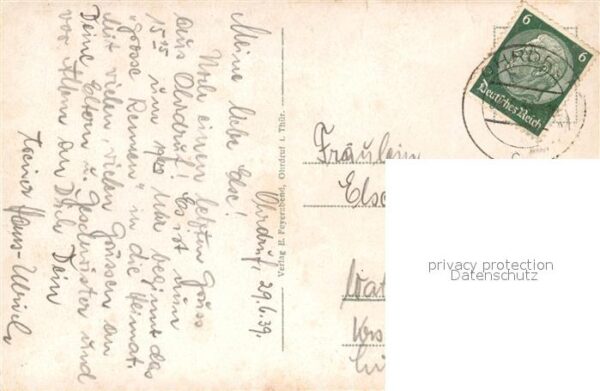 Ohrdruf, 29.6.39.
Meine liebe Else!
Noch einen letzten Gruss
aus Ohrdruf! Es ist nun
15 25 um Uhr beginnt das
"grosse Rennen" in die Heimat.
Mit vielen, vielen Grüssen an
Deine Eltern u. Geschwister und
vor Allem an Dich Dein
Hans-Ulrich
Verlag E. Feyerabend, Ohrdruf i. Thür.
Fräulein
Else
6
6
Deutsches Reich
OHRDRUF
privacy protection
Datenschutz